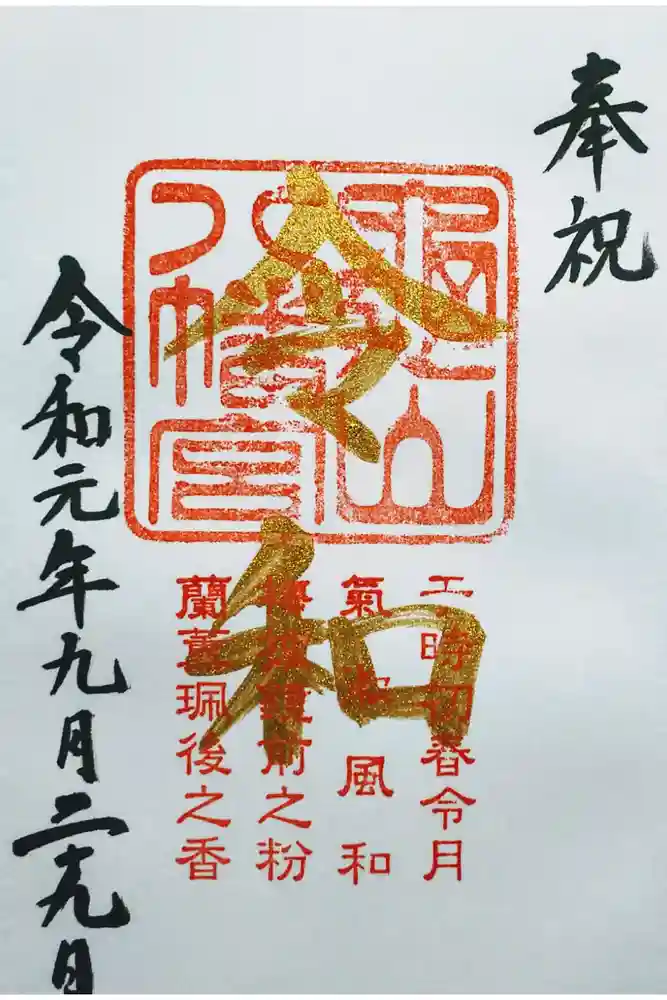 奉祝
令和
八幡宮
于時初春令月
氣淑風和
梅披鏡前之粉
蘭薫珮後之香
令和元年九月二十九日